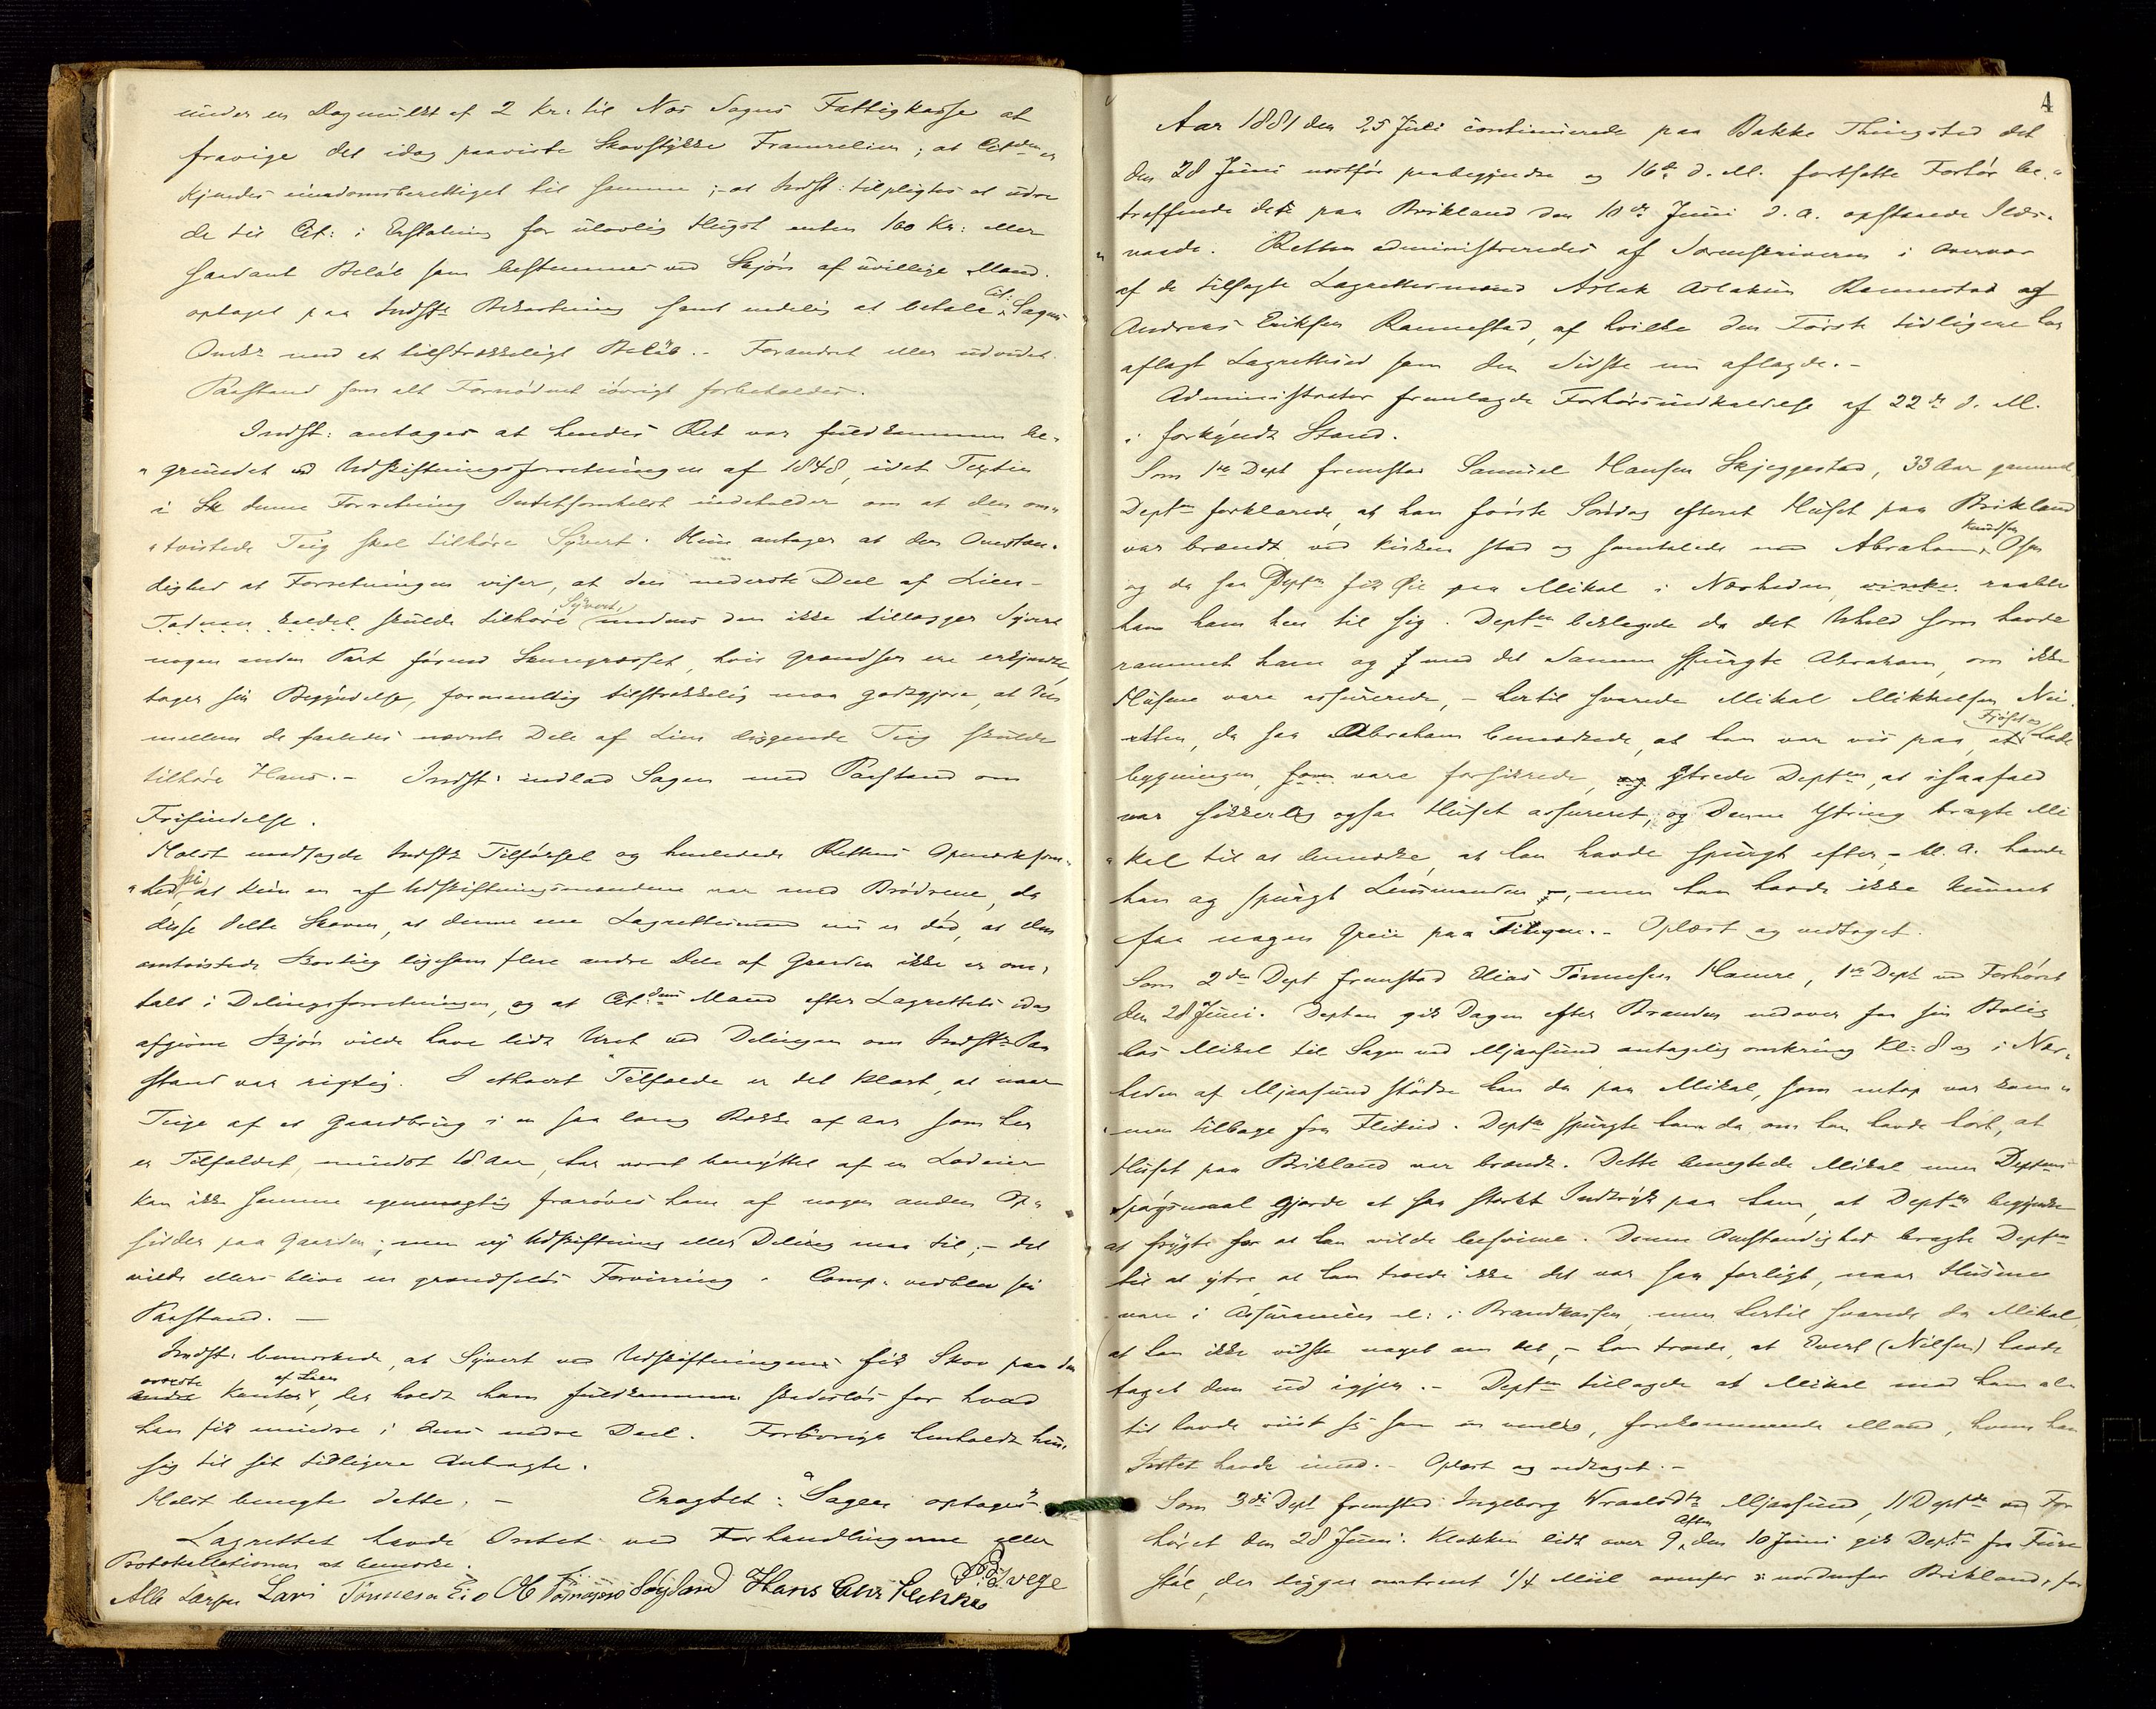 under en Dagmulkt af 2 Kr: til Nes Sogns Fattigkasse at
fravige det idag paaviste Skovstykke Framrelien; at Citdn er
kjendes eiendomsberettiget til samme; at Indst: tilpligtes at udre-
de til Cit: i Erstatning for ulovlig Hugst enten 160 Kr: eller
saadant Beløb som bestemmes ved Skjøn af uvillige Mænd
optaget paa Indsts Bekostning samt endelig at betale Cit: Sagens
Omk: med et tilstrækkeligt Beløb. - Forandret eller udvidet
Paastand som alt Fornødent iøvrigt forbeholdes.
Indst: antager at hendes Ret var fuldkommen be-
"grundet ved Udskiftningsforretningen af 1848, idet Textin
i denne Forretning Intetsomhelst indeholder om at den om-
"tvistede Teig skal tilhøre Syvert. Hun antager at den Omstæn-
dighed at Forretningen viser, at den nederste Deel af Lien -
kaldet skulde tilhøre Syvert, medens den ikke tillægger Syvert
nogen anden Part førend Skuregræsset, hvis Grændser ere erkjendte,
tager sin Begyndelse, formentlig tilstrækkelig maa godtgjøre, at den
mellem de saaledes nævnte Dele af Lien liggende Teig skulde
tilhøre Hans. - Indst: indlod Sagen med Paastand om
Frifindelse.
Holst modsagde Indsts Tilførsel og henledede Rettens Opmærksom-
"hed på at kun en af Udskiftningsmændene var med Brødrene, da
disse delte Skoven, at denne ene Lagrettesmand nu er død, at den
omtvistede Skovteig ligesom flere andre Dele af Gaarden ikke er om-
talt i Delingsforretningen, og at Cit:dens Mand efter Lagrettets idag
afgivne Skjøn vilde have lidt Uret ved Delingen om Indsts Paa
stand var rigtig. I ethvert Tilfælde er det klart, at naar
Teige af et Gaardbrug i en saa lang Række af Aar som her
er Tilfældet, mindst 18 Aar, har været benyttet af en Lodeier
kan ikke samme egenmægtig frarøves ham af nogen anden Op-
sidder paa Gaarden; men ny Udskiftning eller Deling maa til; - det
vilde ellers blive en grændseløs Forvirring. Comp: vedblev sin
Paastand. -
Indst: bemærkede, at Syvert ved Udskiftningen fik Skov paa den
øverste Kanter af Lien, der holdt ham fuldkommen skadesløs for hvad
han fik mindre i dens nedre Deel. Forøvrigt henholdt hun
sig til sit tidligere Anbragte.
Holst benegte dette. - Eragtet: "Sagen optages"
Lagrettet havde Intet ved Forhandlingerne eller
Protokollationen at bemærke.
Alb Larsen Lavi Tønnesen Eie Ole Tønnesen Søyland Hans Chr Flekke vege
4
Aar 1881 den 25 Juli continuerede paa Bakke Thingsted det
den 28 Juni næstfør paabegyndte og 16de d. M. fortsatte Forhør be-
træffende det paa Brikland den 10de Juni d. A. opstaaede Ilds-
"vaade. Retten administreredes af Sorenskriveren i Overvær
af de tilsagte Lagrettesmænd Aslak Aslaksen Rannestad og
Andreas Eriksen Rannestad, af hvilke den Første tidligere har
aflagt Lagretteseed som den Sidste nu aflagde. -
Administrator fremlagde Forhørsindkaldelse af 22de d. M.
i forkyndt Stand.
Som 1ste Dept fremstod Samuel Hansen Skjeggestad, 33 Aar gammel
Deptn forklarede, at han første Søndag efterat Huset paa Brikland
var brændt ved Kirken stod og samtalede med Abraham Knudsen Osen
og da saa Deptn fik Øie paa Mikal i Nærheden, raabte
han ham hen til sig. Deptn beklagede da det Uheld som havde
rammet ham og med det Samme spurgte Abraham, om ikke
Husene vare assurerede, - hertil svarede Mikal Mikkelsen Nei
etter, da saa Abraham bemærkede, at han var vis paa, at Fjøset og Lade
bygningen, som vare forsikrede, ytrede Deptn, at isaafald
var sikkerlig ogsaa Huset assureret, og Denne Ytring bragte Mi
"kal til at bemærke, at han havde spurgt efter, - bl. A. havde
han og spurgt Lensmanden -, men han havde ikke kunnet
faa nogen Greie paa Tingen. - Oplæst og vedtaget.
Som 2den Dept fremstod Elias Tønnesen Hamre, 1ste Dept ved Forhøret
den 28 Juni. Depten gik Dagen efter Branden nedover fra sin Bolig
hos Mikal til Sagen ved Mjaasund antagelig omkring Kl: 8 og i Nær-
heden af Mjaasund stødte han da paa Mikal, som netop var kom-
"men tilbage fra Flikeid. Deptn spurgte ham da om han havde hørt, at
Huset paa Brikland var brændt. Dette benegtede Mikal men Deptens
Spørgsmaal gjorde et saa stærkt Indtryk paa ham, at Deptn begyndte
at frygte for at han vilde besvime. Denne Omstændighed bragte Deptn
til at ytre, at han troede ikke det var saa farligt, naar Husene
vare i Assurancen el: i Brandkassen, men hertil svarede da Mikal,
at han ikke vidste noget om det, - han troede, at Evert (Nilsen) havde
taget dem ud igjen. - Deptn tillagde at Mikal mod ham al-
tid havde viist sig som en venlig, forekommende Mand, hvem han
Intet havde imod. - Oplæst og vedtaget. -
Som 3die Dept fremstod Ingeborg Mjaasund, 11 Deptde ved For
høret den 28 Juni. Klokken lidt over 9 Aften den 10 Juni gik Deptn fra Fure
støl, der ligger omtrent 1/4 Miil ovenfor & nordenfor Brikland, for